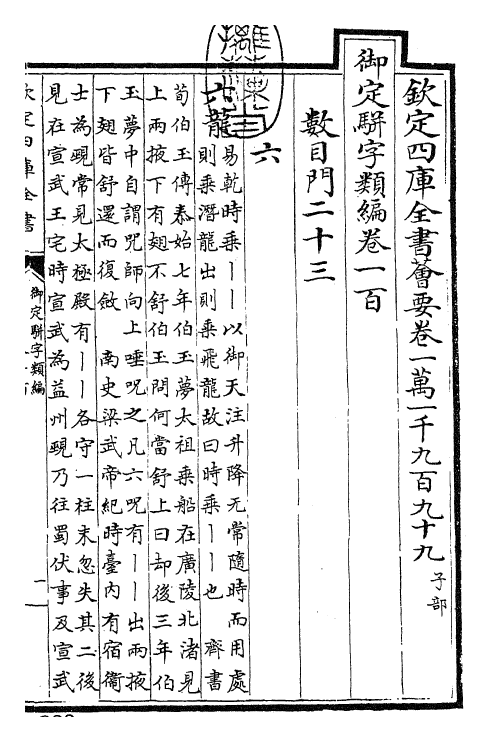 欽定四庫全書薈要卷一萬一千九百九十九 子部
御定駢字類編卷一百
數目門二十三
六
六龍
易乾時乘丨丨以御天注升降无常隨時而用處
則乘潛龍出則乘飛龍故曰時乘丨丨也 齊書
荀伯玉傳泰始七年伯玉夢太祖乘船在廣陵北渚見
上兩掖下有翅不舒伯玉問何當舒上曰却後三年伯
玉夢中自謂咒師向上唾咒之凡六咒有丨丨出兩掖
下翅皆舒還而復斂 南史梁武帝紀時臺内有宿衛
士為覡常見太極殿有丨丨各守一柱末忽失其二後
見在宣武王宅時宣武為益州覡乃往蜀伏事及宣武
欽定四庫全書
御定駢字類編
一